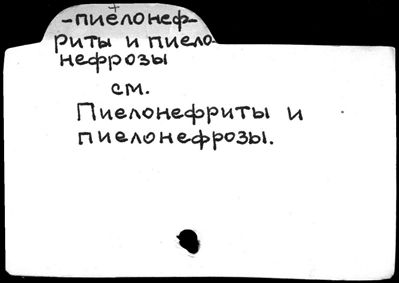 -пиелонеф-
риты и пиело-
нефрозы
см.
Пиелонефриты и
пиелонефрозы.